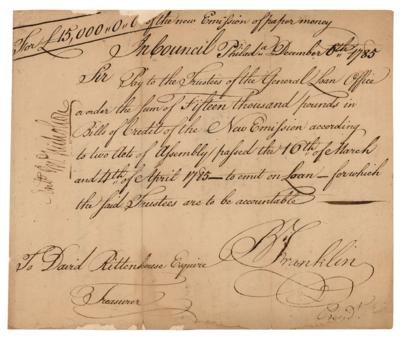 For £15,000„0„0 of the new Emission of paper money
In Council Philadᵃ December 6th 1785
Sir
Pay to the Trustees of the General Loan Office
or order the sum of Fifteen thousand pounds in
Bills of Credit of the New Emission according
to two Acts of Assembly passed the 16th of March
and 4th of April 1785 — to emit on Loan — for which
the said Trustees are to be accountable
Jnº Nicholson
B Franklin
Presidt
To David Rittenhouse Esquire
Treasurer